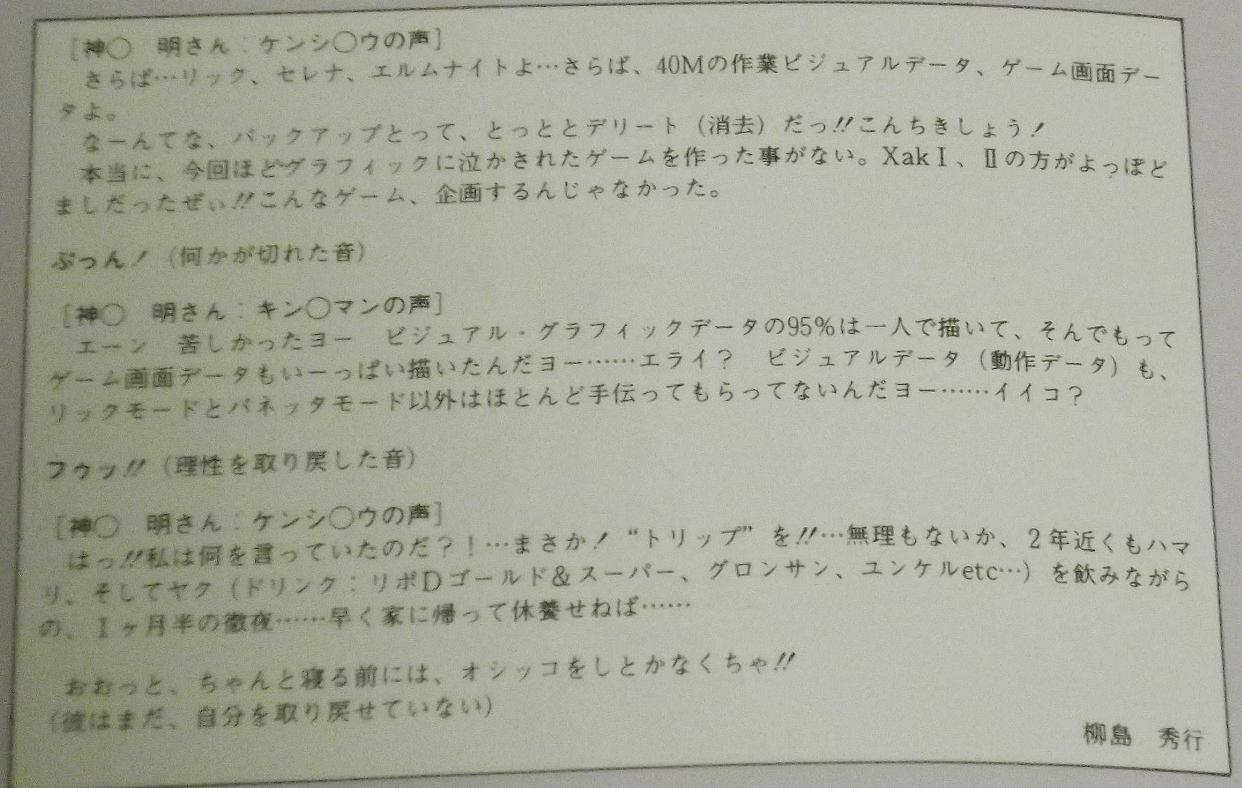 [神○　明さん：ケンシ○ウの声]
さらば…リック、セレナ、エルムナイトよ…さらば、40Mの作業ビジュアルデータ、ゲーム画面デー
タよ。
なーんてな、バックアップとって、とっととデリート（消去）だっ!!こんちきしょう！
本当に、今回ほどグラフィックに泣かされたゲームを作った事がない。XakⅠ、Ⅱの方がよっぽど
ましだったぜぃ!!こんなゲーム、企画するんじゃなかった。
ぷっん！（何かが切れた音）
[神○　明さん：キン○マンの声]
エーン　苦しかったヨー　ビジュアル・グラフィックデータの95％は一人で描いて、そんでもって
ゲーム画面データもいーっぱい描いたんだヨー……エライ？　ビジュアルデータ（動作データ）も、
リックモードとバネッタモード以外はほとんど手伝ってもらってないんだヨー……イイコ？
フゥッ!!（理性を取り戻した音）
[神○　明さん：ケンシ○ウの声]
はっ!!私は何を言っていたのだ？！…まさか！“トリップ”を!!…無理もないか、２年近くもハマ
り、そしてヤク（ドリンク：リポDゴールド&スーパー、グロンサン、ユンケルetc…）を飲みながら
の、１ヶ月半の徹夜……早く家に帰って休養せねば……
おおっと、ちゃんと寝る前には、オシッコをしとかなくちゃ!!
（彼はまだ、自分を取り戻せていない）
柳島　秀行